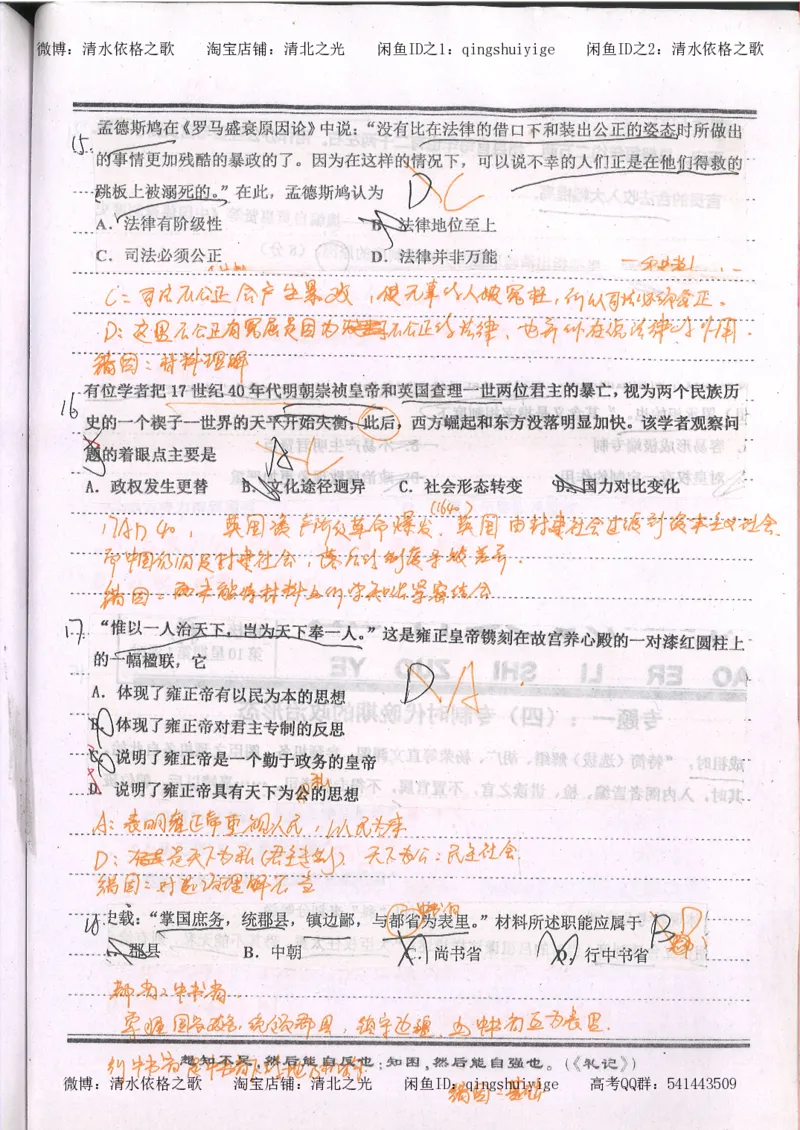 微博：清水依格之歌 淘宝店铺：清北之光 闲鱼ID之1：qingshuiyige 闲鱼ID之2：清水依格之歌
15. 孟德斯鸠在《罗马盛衰原因论》中说：“没有比在法律的借口下和装出公正的姿态时所做出
的事情更加残酷的暴政的了。因为在这样的情况下，可以说不幸的人们正是在他们得救的
跳板上被溺死的。”在此，孟德斯鸠认为 D C
A．法律有阶级性 B．法律地位至上
C．司法必须公正 D．法律并非万能
C：司法不公正会产生暴政，使无辜的人被冤枉，所以司法必须公正。
D：这里不公正有冤屈是因为不公正的法律，也并非在说法律的作用．
错因：材料理解
16 有位学者把17世纪40年代明朝崇祯皇帝和英国查理一世两位君主的暴亡，视为两个民族历
史的一个楔子--世界的天平开始失衡，此后，西方崛起和东方没落明显加快。该学者观察问
题的着眼点主要是 A C
A．政权发生更替 B．文化途径迥异 C．社会形态转变 D．国力对比变化
(1640)
17世纪40，英国资产阶级革命爆发．英国由封建社会过渡到资本主义社会．
而中国仍旧是封建社会，落后的制度导致差异．
错因：
17. “惟以一人治天下，岂为天下奉一人。”这是雍正皇帝镌刻在故宫养心殿的一对漆红圆柱上
的一幅楹联，它
A．体现了雍正帝有以民为本的思想 D A
B．体现了雍正帝对君主专制的反思
C．说明了雍正帝是一个勤于政务的皇帝
D．说明了雍正帝具有天下为公的思想
A：表明雍正帝重视人民，以人民为本
D：是天下为私（君主专制） 天下为公：民主社会
错因：对政治理解不当
18 史载：“掌国庶务，统郡县，镇边鄙，与都省为表里。”材料所述职能应属于 B
A．郡县 B．中朝 C．尚书省 D．行中书省
都省：中书省．
掌握国家政务，统领郡县，镇守边疆，与中书省互为表里．
想知不足，然后能自反也；知困，然后能自强也。（《礼记》）
微博：清水依格之歌 淘宝店铺：清北之光 闲鱼ID：qingshuiyige 高考QQ群：541443509